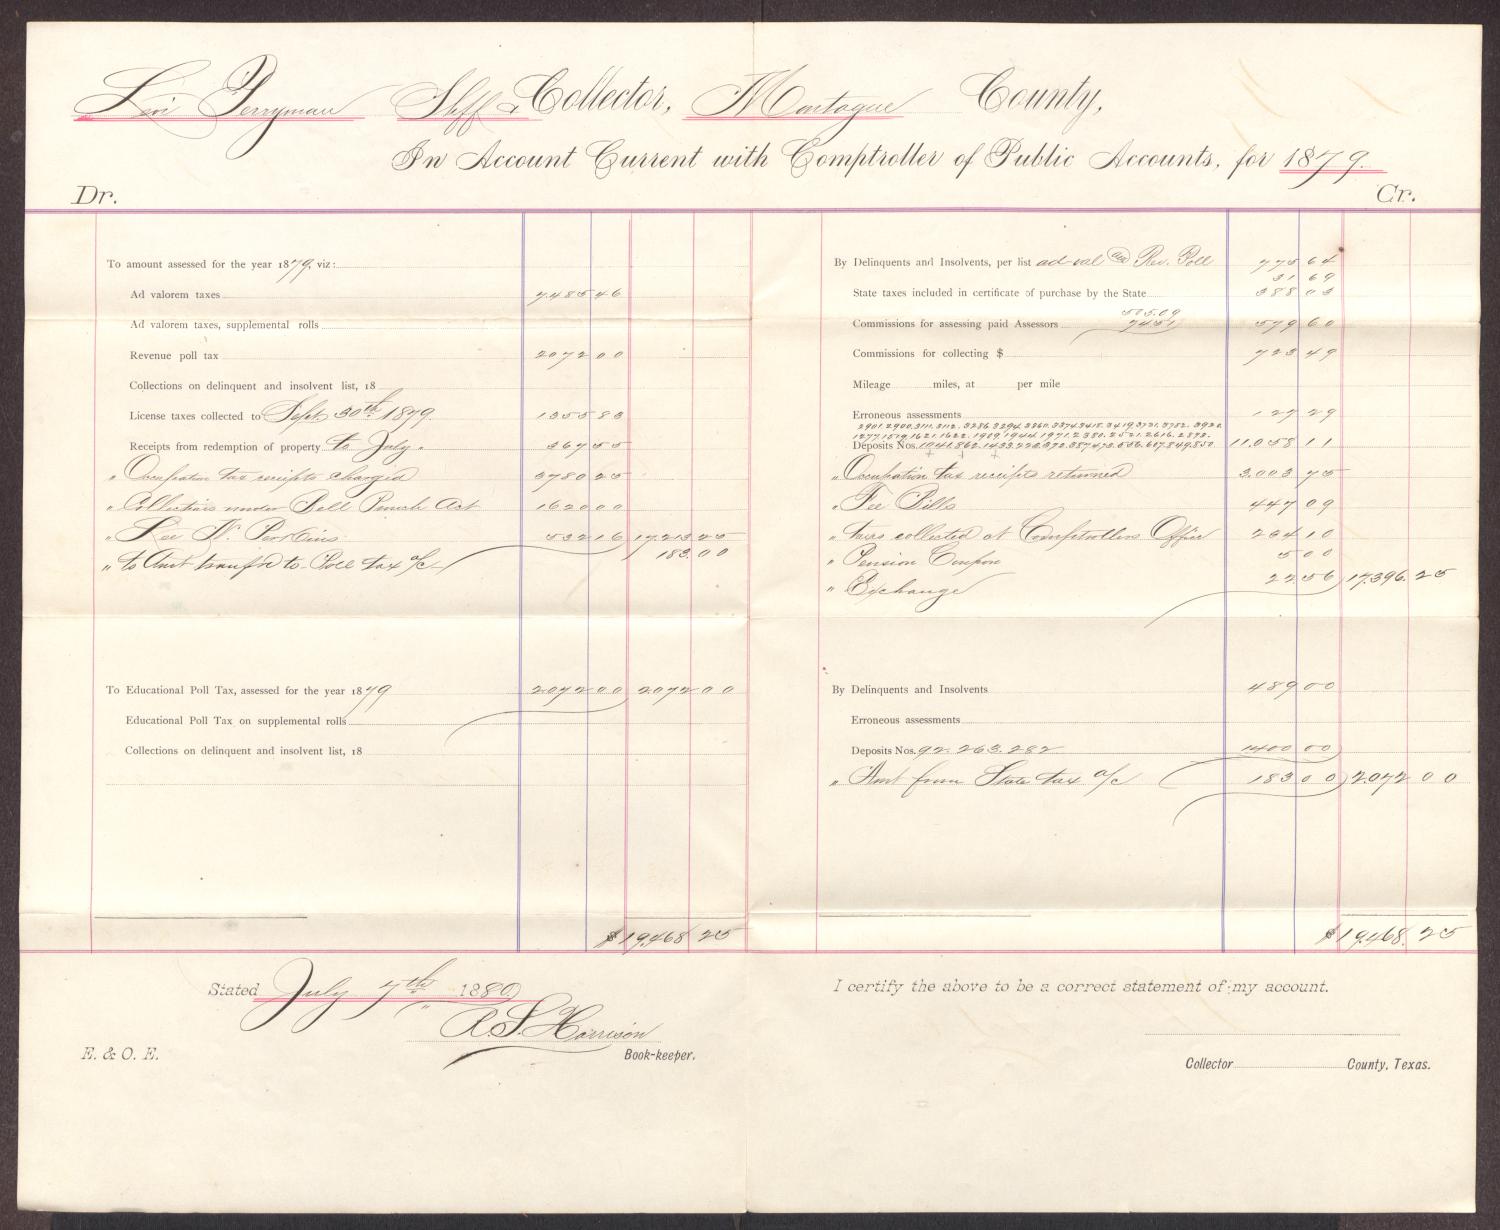 Levi Perryman Shff & Collector, Montague County,
In Account Current with Comptroller of Public Accounts, for 1879.
Dr.
Cr.
To amount assessed for the year 1879, viz:
Ad valorem taxes 7.485 46
Ad valorem taxes, supplemental rolls
Revenue poll tax 2072 00
Collections on delinquent and insolvent list, 18
License taxes collected to Sept 30th 1879. 1355 83
Receipts from redemption of property to July. 367 55
" Occupation tax receipts charged 3780 25
" Collections under Bell Punch Act 1620 00
" Lee N. Perkins 532 16 17.213 25
" to Amt transfrd to Poll tax a/c 183.00
To Educational Poll Tax, assessed for the year 1879 2072 00 2072 00
Educational Poll Tax on supplemental rolls
Collections on delinquent and insolvent list, 18
$19,468 25
By Delinquents and Insolvents, per list ad-val and Rev. Poll 775 64
31 69
State taxes included in certificate of purchase by the State 388 03
505.09
Commissions for assessing paid Assessors 74.51 579 60
Commissions for collecting $ 723 49
Mileage miles, at per mile
Erroneous assessments 127 29
2901. 2900. 3111. 3112. 3286. 3294. 3360. 3374. 3415. 3419. 3721. 3752. 3920.
1277. 1519. 1621. 1622. 1909. 1944. 1971. 2380. 2521. 2616. 2872.
Deposits Nos. 11.058 11
" Occupation tax receipts returned 3.003 75
" Fee Bills 447 09
" taxes collected at Comptrollers Office 234 10
" Pension Coupon 5 00
" Exchange 22 56 17.396. 25
By Delinquents and Insolvents 489 00
Erroneous assessments
Deposits Nos. 92. 263. 282 1400 00
" Amt from State tax a/c 183 00 2.072 00
$19,468. 25
Stated July 7th 1880
R. S. Harrison
E. & O. E.
Book-keeper.
I certify the above to be a correct statement of my account.
Collector County, Texas.